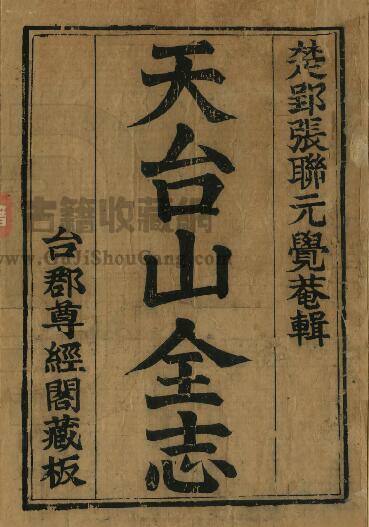 楚郢張聯元覺菴輯
天台山全志
台郡尊經閣藏板
古籍收藏網
www.GuJiShouCang.com